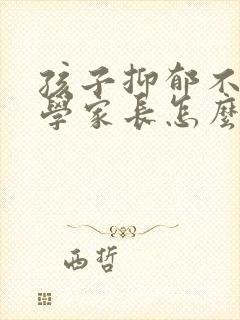 孩子抑郁不
學家長怎麼
西哲